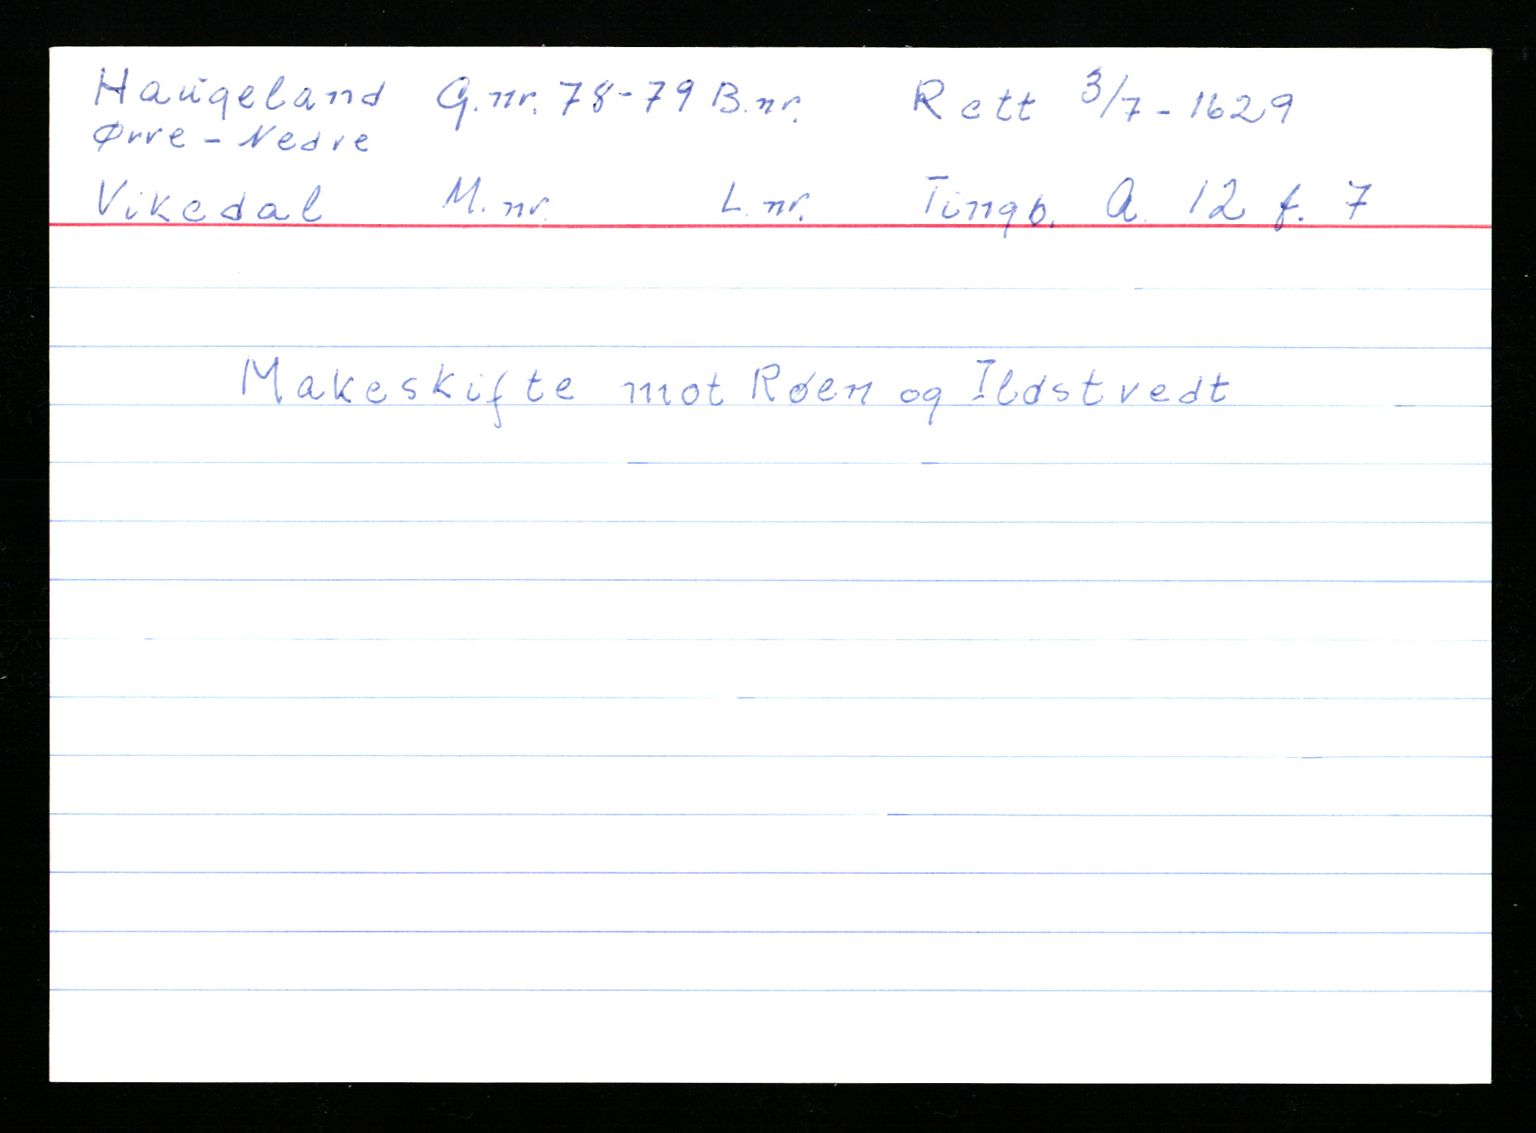 Haugeland G.nr. 78-79 B.nr. Rett 3/7-1629
Ørre - Nedre
Vikedal M.nr. L.nr. Tingb. A. 12 f. 7
Makeskifte mot Røen og Ildstvedt